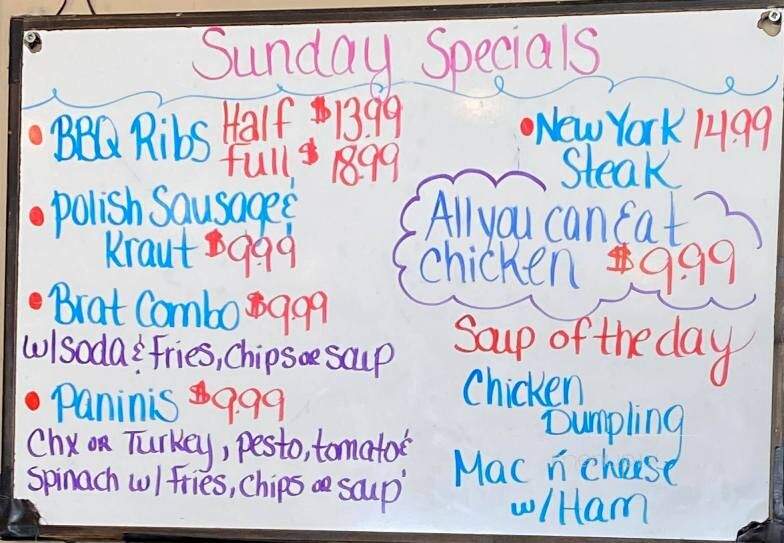 Sunday Specials
• BBQ Ribs Half $13.99
Full $18.99
• Polish Sausage &
Kraut $9.99
• Brat Combo $9.99
w/ Soda & Fries, Chips or Soup
• Paninis $9.99
Chx or Turkey, pesto, tomato &
Spinach w/ Fries, Chips or Soup
• New York 14.99
Steak
All you can Eat
chicken $9.99
Soup of the day
Chicken
Dumpling
Mac n' cheese
w/ Ham